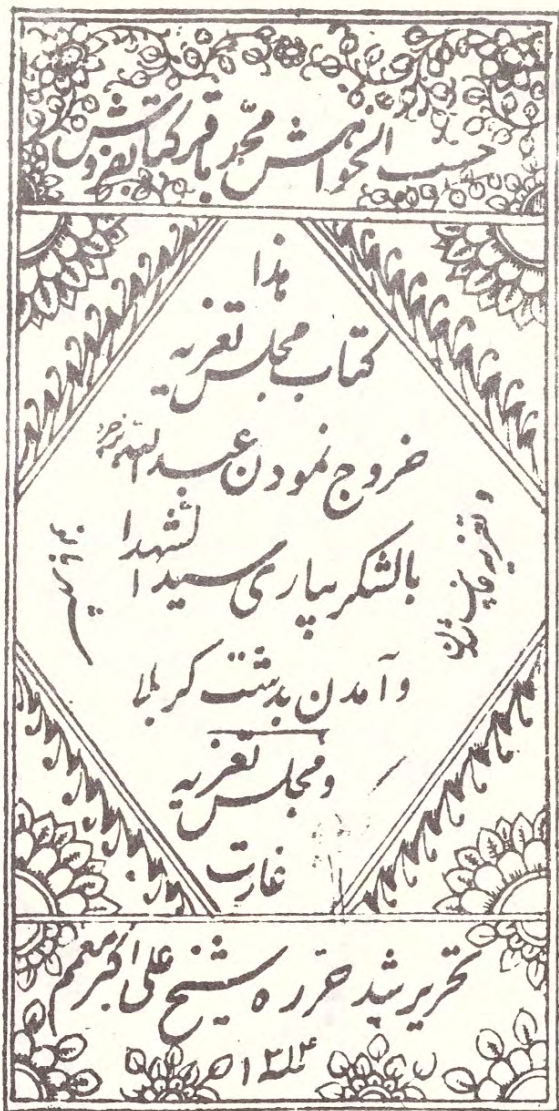 حسب الخواهش محمد باقر کتابفروش
هذا
کتاب مجلس تعزیه
خروج نمودن عبدالله
بالشکر بیاری سیدالشهدا
وآمدن بدشت کربلا
ومجلس تعزیه
غارت
و تعزیه
تحریر شد حرره شیخ علی اکبر معمم